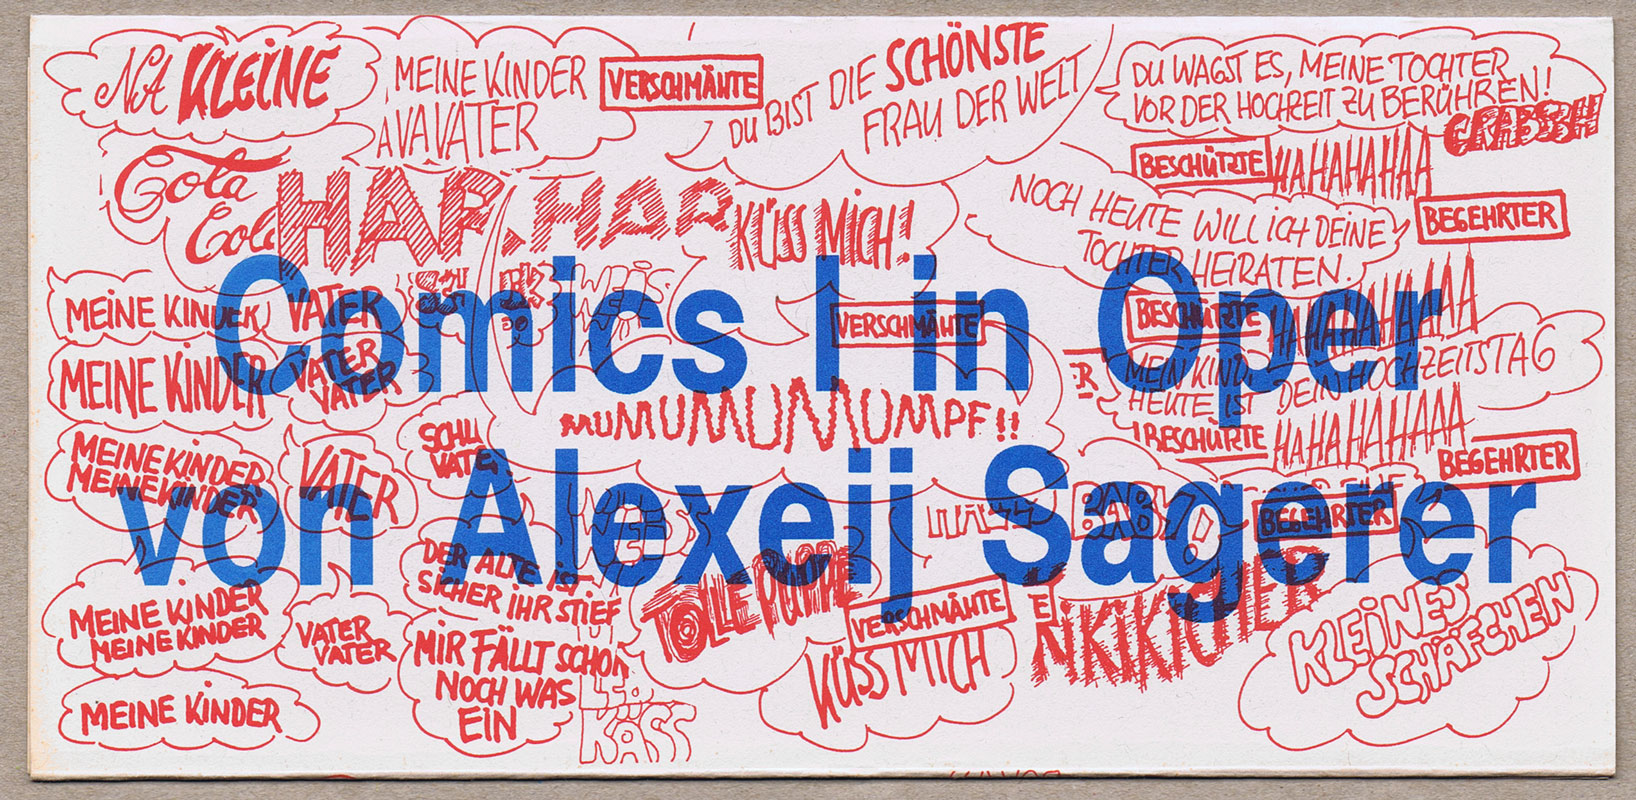 NA KLEINE
MEINE KINDER
AVAVATER
VERSCHMÄHTE
DU BIST DIE SCHÖNSTE
FRAU DER WELT
DU WAGST ES, MEINE TOCHTER
VOR DER HOCHZEIT ZU BERÜHREN!
GRABSSH
BESCHÜTZTE
HAHAHAHAA
Cola
Cola
HAR HAR
KÜSS MICH!
NOCH HEUTE WILL ICH DEINE
TOCHTER HEIRATEN.
BEGEHRTER
Comics I in Oper
MEINE KINDER
VATER
VERSCHMÄHTE
BESCHÜTZTE
HAHAHAHAHAA
MEINE KINDER
VATER
VATER
MEIN KIND, DEIN HOCHZEITSTAG
HEUTE IST
MUMUMUMUMUMPF!!
BESCHÜTZTE
HAHAHAHAAA
BEGEHRTER
MEINE KINDER
MEINE KINDER
VATER
von Alexeij Sagerer
BABY!
BEGEHRTER
DER ALTE IST
SICHER IHR STIEF
TOLLE PUPPE
VERSCHMÄHTE
KÜSS MICH
KLEINES
SCHÄFCHEN
MEINE KINDER
MEINE KINDER
VATER
VATER
MIR FÄLLT SCHON
NOCH WAS
EIN
MEINE KINDER